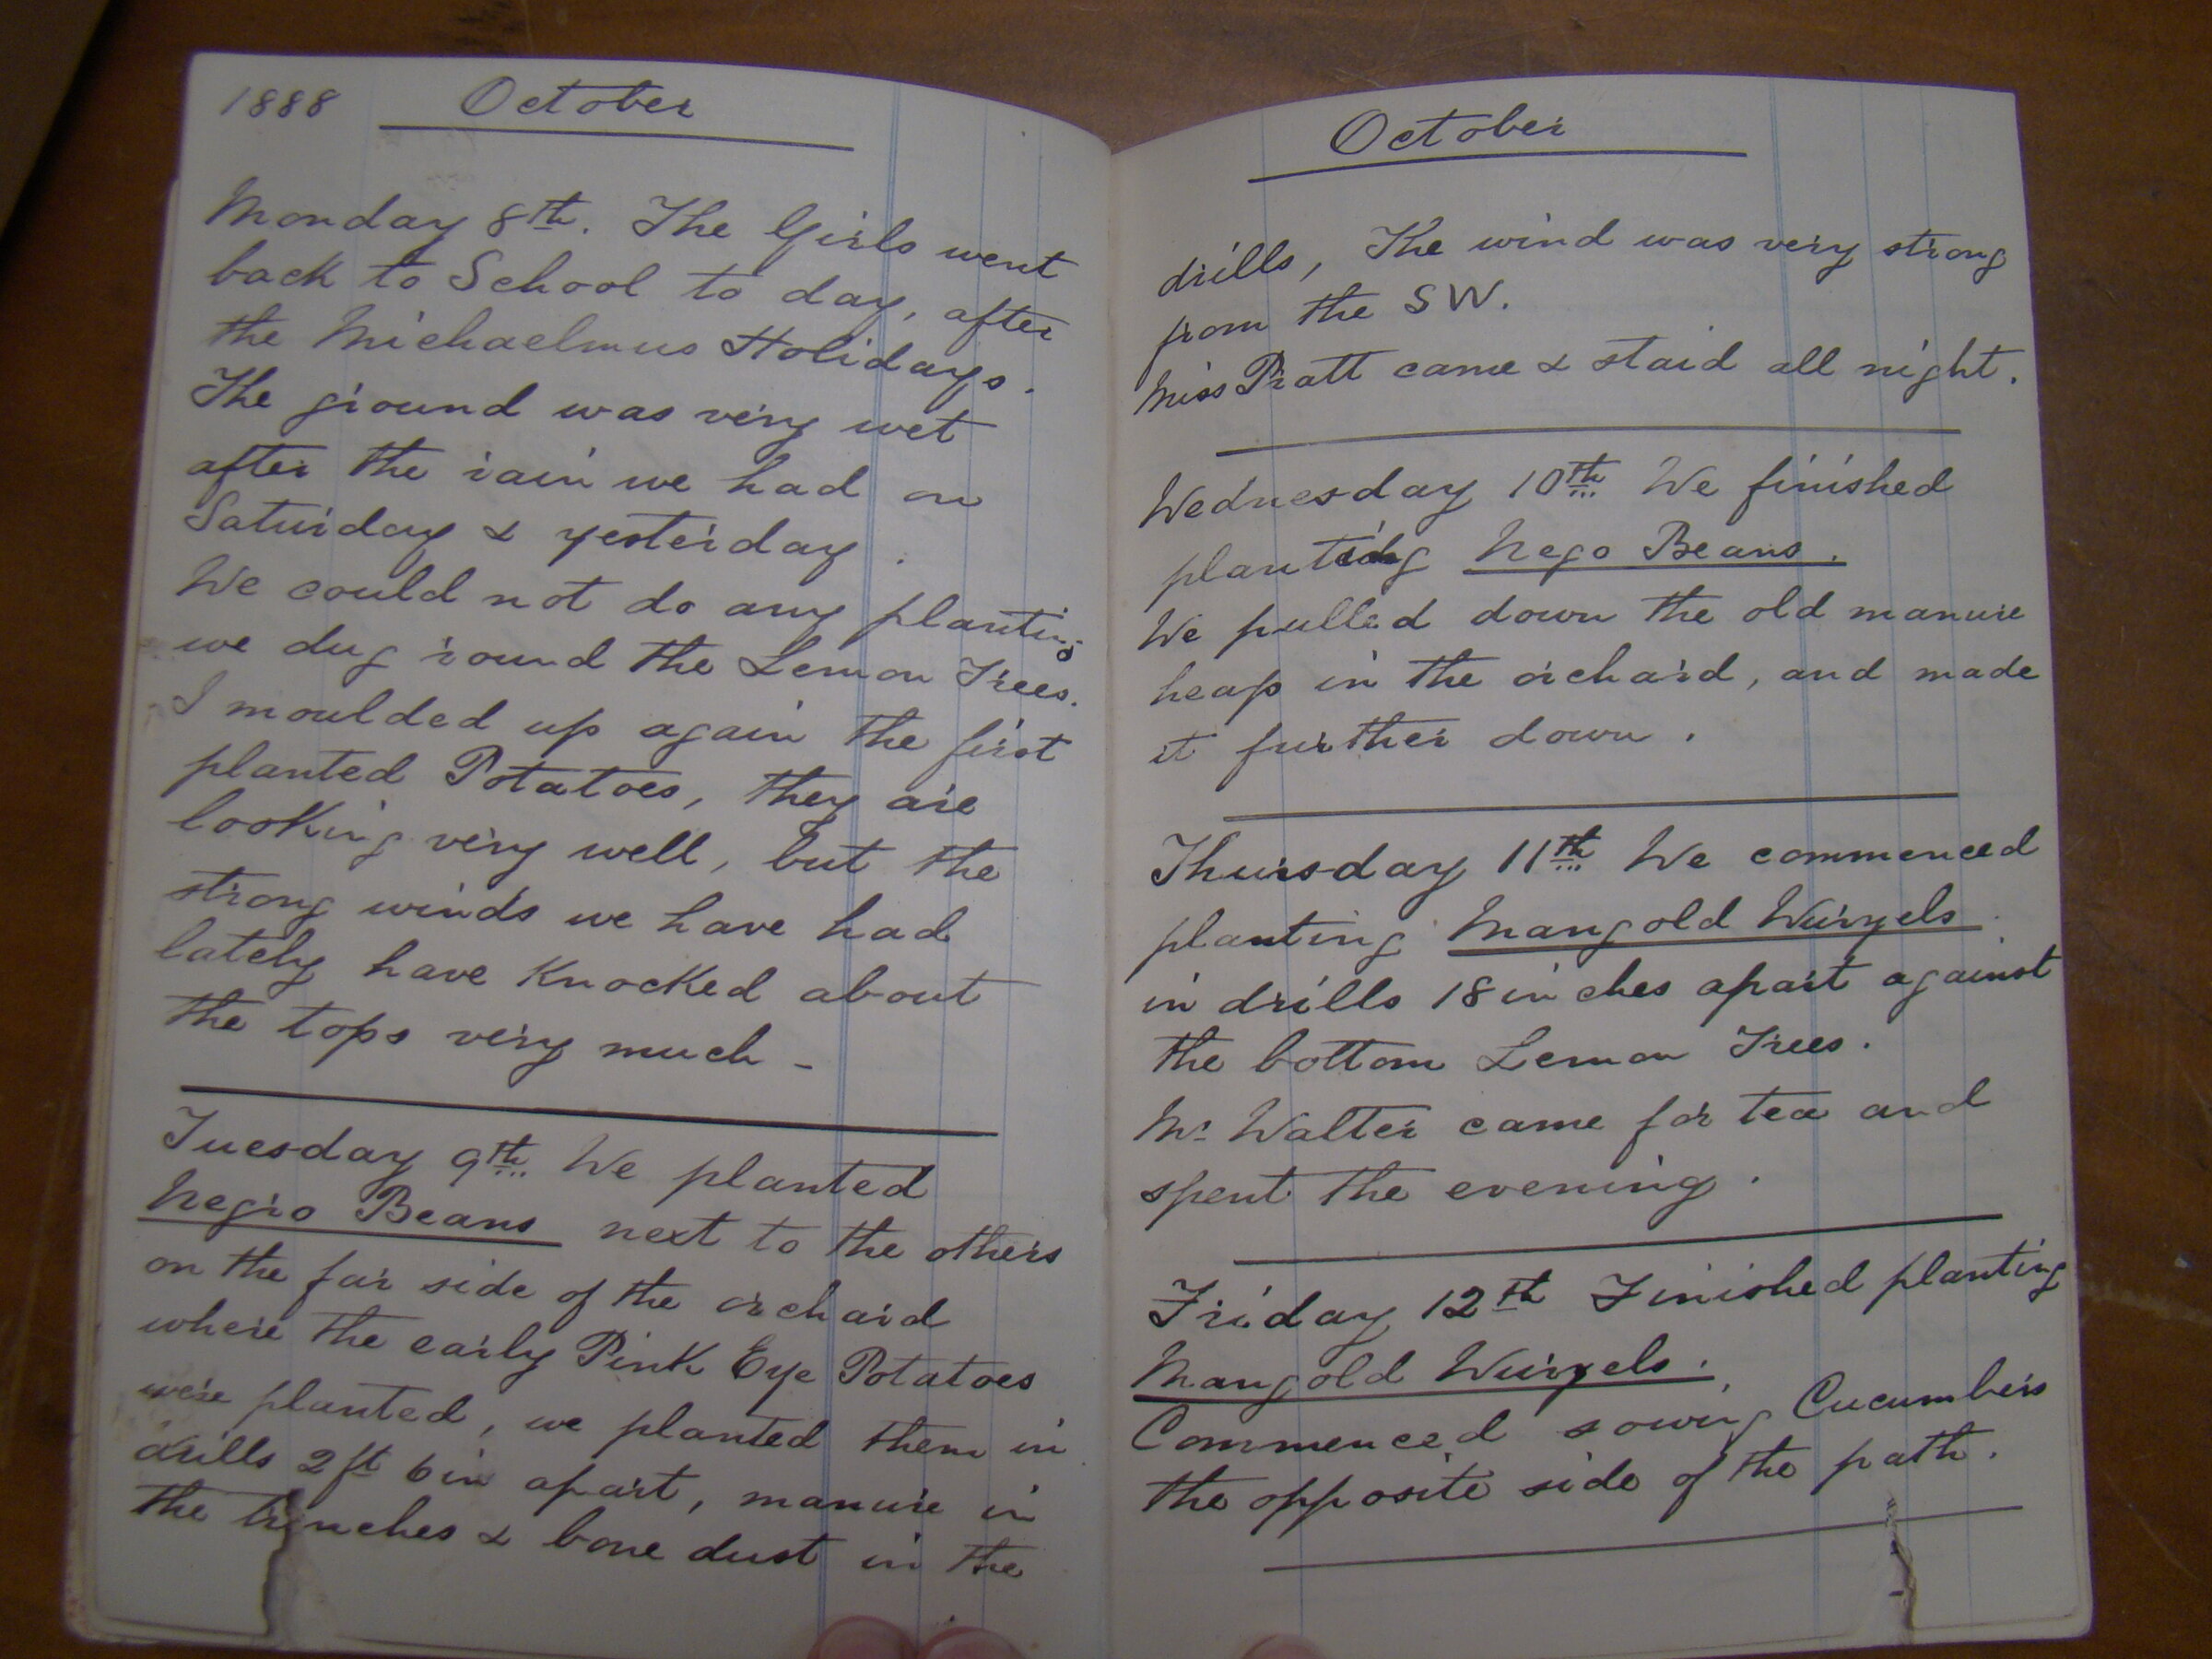 1888 October
Monday 8th. The Girls went
back to School to day, after
the Michaelmus Holidays.
The ground was very wet
after the rain we had on
Saturday & yesterday.
We could not do any planting
we dug round the Lemon Trees.
I moulded up again the first
planted Potatoes, they are
looking very well, but the
strong winds we have had
lately have Knocked about
the tops very much -
Tuesday 9th We planted
Negro Beans next to the others
on the far side of the orchard
where the early Pink Eye Potatoes
were planted, we planted them in
drills 2 ft 6 in apart, manure in
the trenches & bone dust in the
October
drills, The wind was very strong
from the SW.
Miss Pratt came & staid all night.
Wednesday 10th We finished
planting Nego Beans.
We pulled down the old manure
heap in the orchard, and made
it further down.
Thursday 11th We commenced
planting Mangold Wurzels
in drills 18 inches apart against
the bottom Lemon Trees.
Mr Walter came for tea and
spent the evening.
Friday 12th Finished planting
Mangold Wurzels.
Commenced sowing Cucumbers
the opposite side of the path.